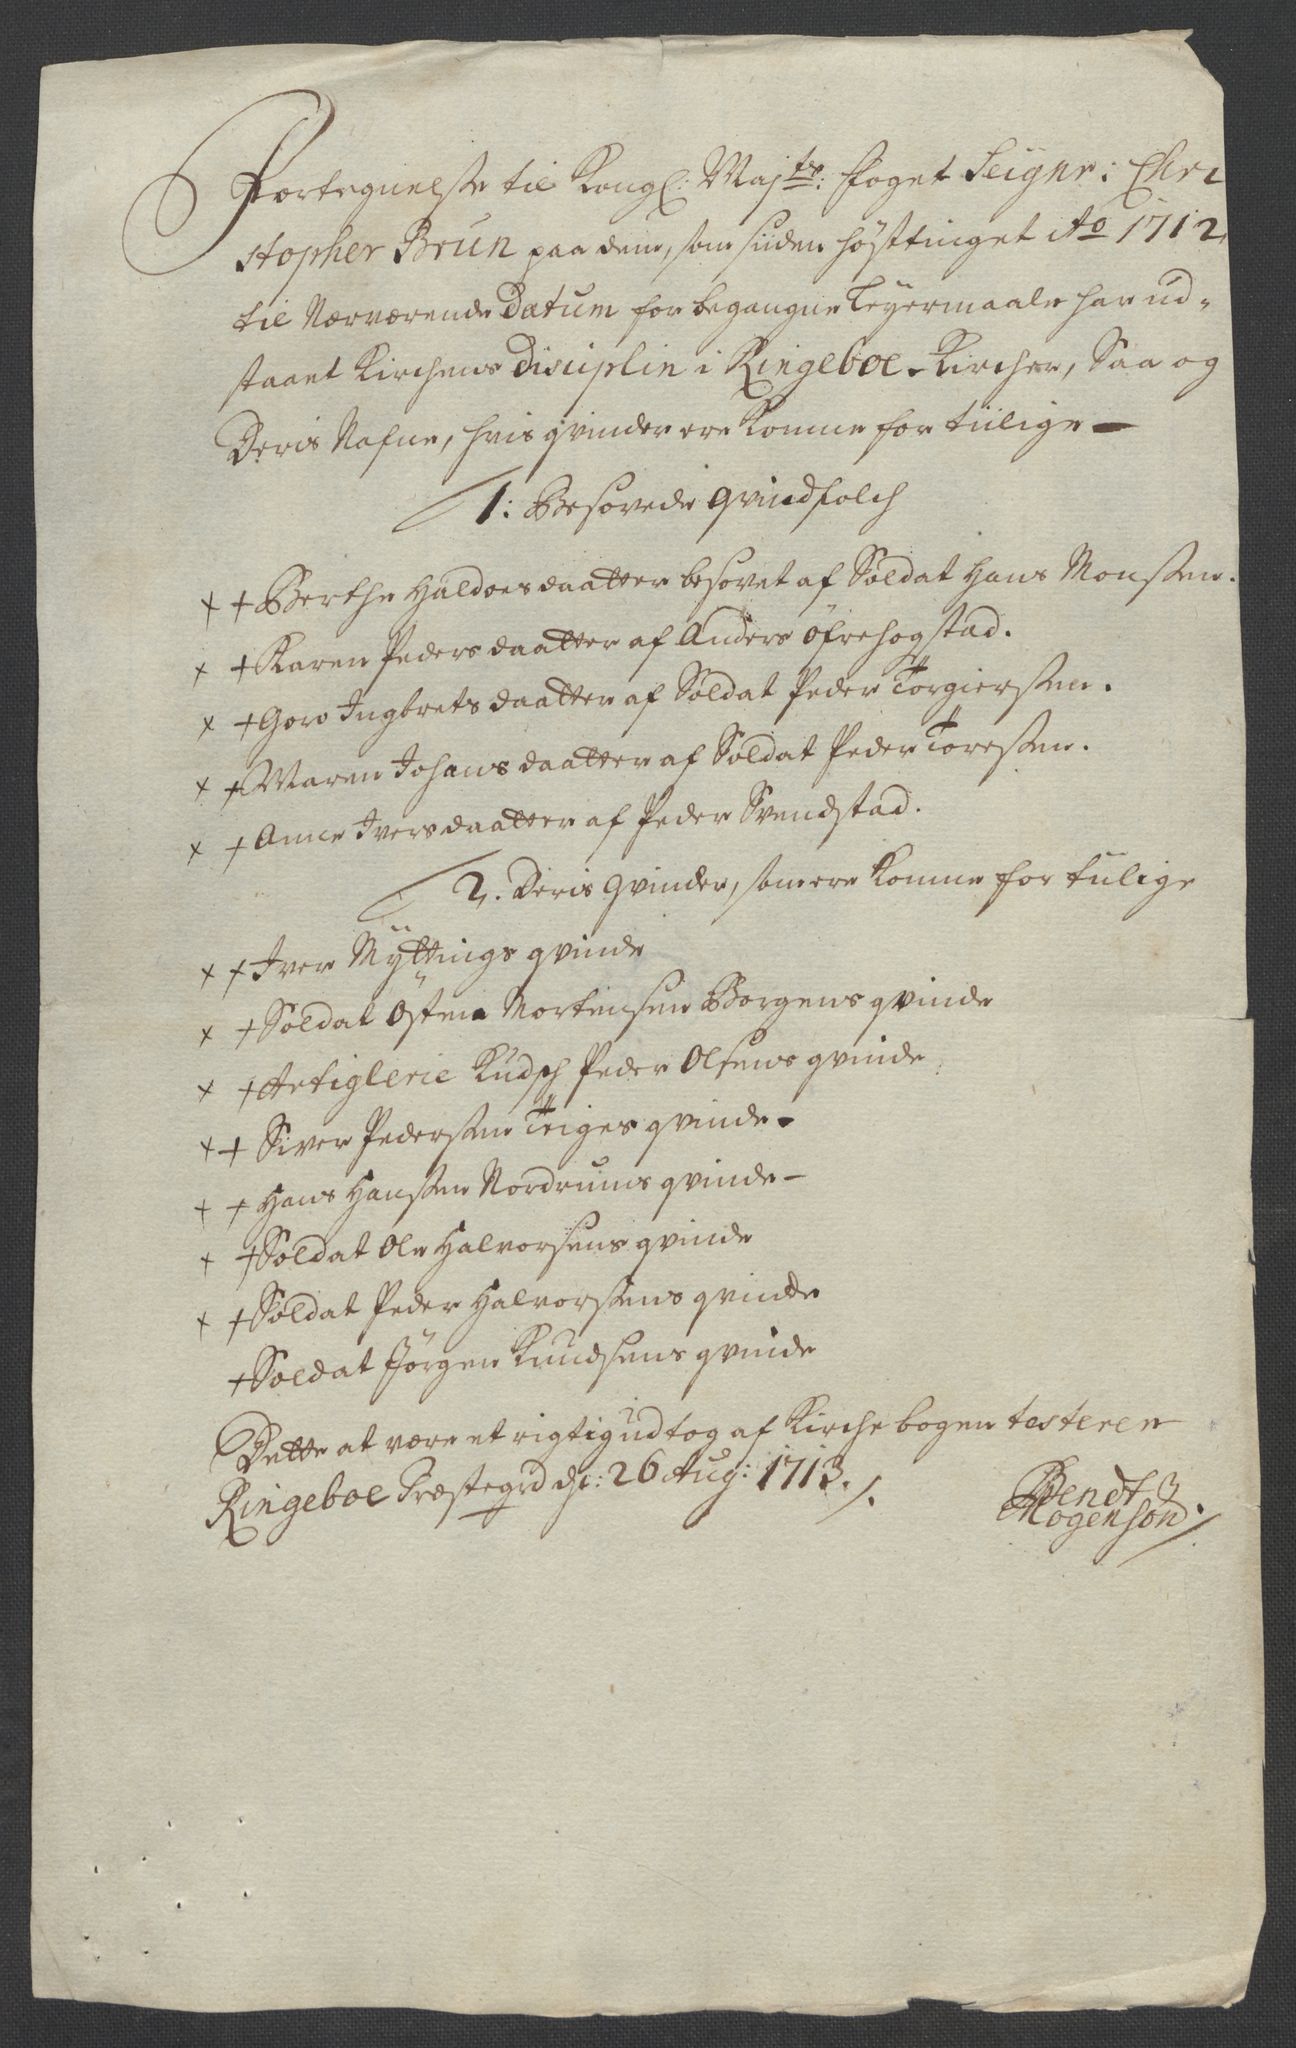 Fortegnelse til Kongl: Majts: Foget Seignr: Chri
stopher Brun paa dem, som siiden høsttinget Ao 1712
til Nærværende Datum for begangne Leyermaale har ud-
staaet Kirchens Disciplin i Ringeboe-Kircher, Saa og
Deris Nafne, hvis qvinder ere komne for tiilige —
1: Besovede qvindfolch
× + Berthe Haldoersdaatter besovet af Soldat Hans Monssen.
× + Karen Pedersdaatter af Anders Öfrehogstad.
× + Goro Ingbretsdaatter af Soldat Peder Torgierssen.
× + Maren Johansdaatter af Soldat Peder Toressen.
× + Anne Iversdaatter af Peder Svendstad.
2. Deris Qvinder, som ere komne for tiilige
× + Iver Myttings qvinde
× + Soldat Østen Mortensen Borgens qvinde
× + Artiglerie Kudsch Peder Olsens qvinde
× + Siver Pederssen Teiges qvinde -
× + Hans Hanssen Nordrums qvinde -
× + Soldat Ole Halvorsens qvinde
× + Soldat Peder Halvorssens qvinde
+ Soldat Jörgen Knudsens qvinde
Dette at være et rigtig udtog af Kirchebogen testerer
Ringeboe Præstegrd dn: 26 Aug: 1713 ./.
Bendt
Mogensøn